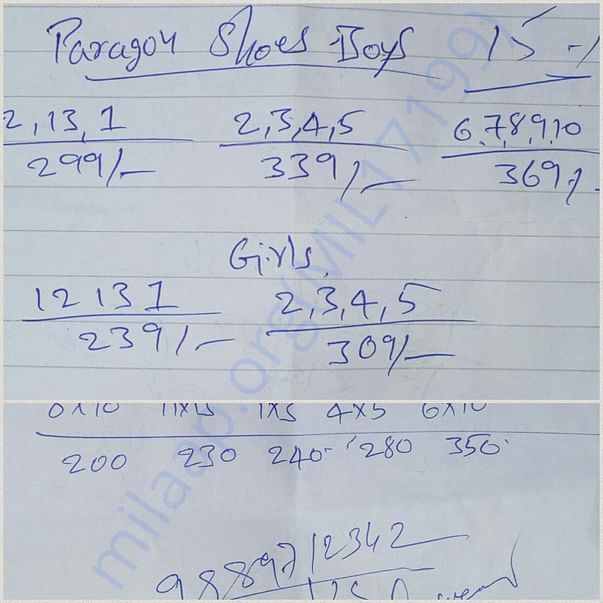 Paragon Shoes Boys 15-/
2,13,1 2,3,4,5 6,7,8,9,10
299/- 339/- 369/-
Girls.
12 13 1 2,3,4,5
239/- 309/-
6x10 11x13 1x3 4x5 6x10
200 230 240 280 350
milaap.org/MIL171991